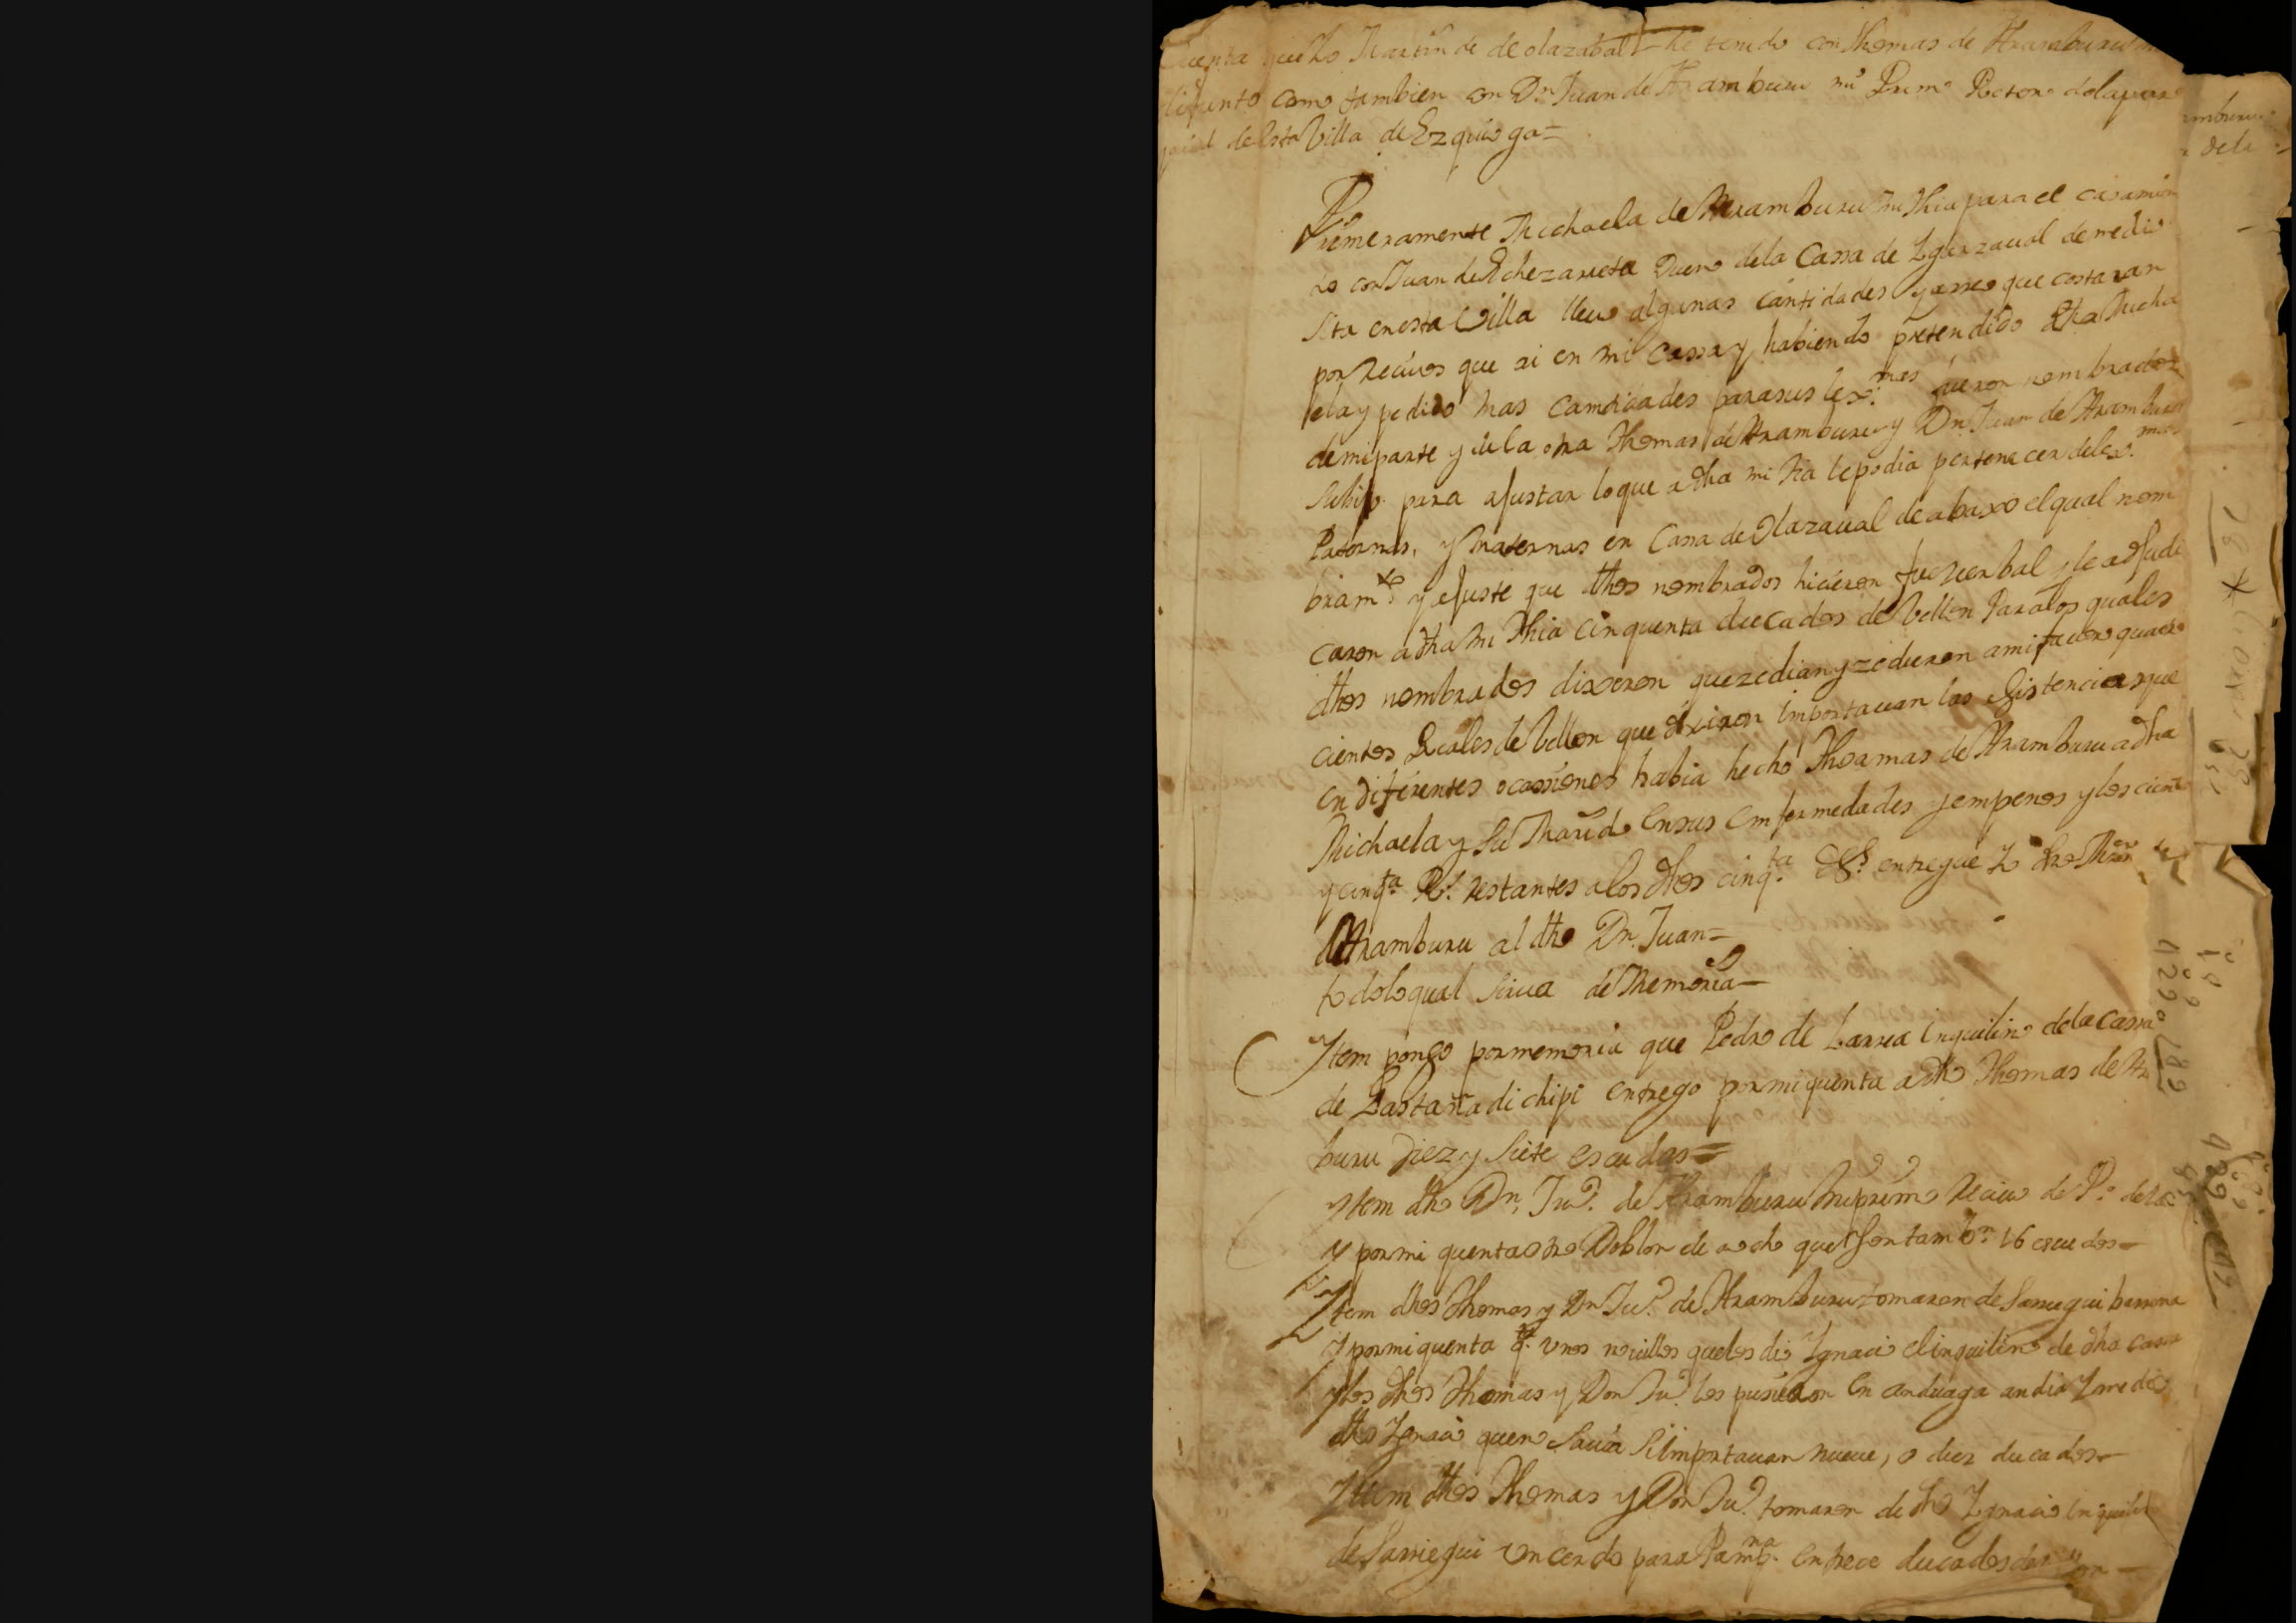 Cuenta que Yo Martin de de olazabal he tenido con Thomas de Aramburu mi
difunto como tambien con Dn. Juan de Aramburu mi Primo Rector dela parro
quial de esta Villa de Ezquioga=
Primeramente Michaela de Aramburu mi Thia para el casamien
to con Juan de Echezarreta Dueno dela Cassa de Ygarzaual de medio
sita en esta Villa lleuo algunas cantidades y arreo que costaran
por reciuos que ai en mi Cassa y habiendo pretendido dha Micha
ela y pedido mas cantidades para sus lex.mas fueron nombrados
de mi parte y de la otra Thomas de Aramburu y Dn. Juan de Aramburu
su hijo para ajustar lo que a dha mi tia le podia pertenecer de lex.mas
Paternas, y maternas en Cassa de Olazaual de abaxo el qual nom
bram.to y ajuste que dhos nombrados hicieron fue verbal y le adjudi
caron a dha mi Thia cinquenta ducados de Vellon Para los quales
dhos nombrados dixeron que zedian y zedieron a mi fauor quatro
cientos Reales de Vellon que dixeron importauan las asistencias que
en diferentes ocassiones habia hecho Thoamas de Aramburu a dha
Michaela y su Marido en sus enfermedades y empenos y los ciento
y cinq.ta Rs. restantes a los dhos cinq.ta Ds. entregue Yo dho Mrn de
Aramburu al dho Dn. Juan=
todo lo qual sirua de Memoria—
Ytem pongo por memoria que Pedro de Larrea inquilino de la cassa
de Gastanadi chipi entrego por mi quenta a dho Thomas de Ar
buru Diez y siete escudos=
Ytem dho Dn. Ju.o de Aramburu mi primo reciuio de P.o de La
y por mi quenta otro Doblon de a ocho que son tambn. 16 escudos—
Ytem dhos Thomas y Dn Ju.o de Aramburu tomaron de Sarriegui barrena
y por mi quenta unos nouillos que los dio Ygnacio el inquilino de dha cassa
y los dhos Thomas y Don Ju.o los pusieron en anduaga andia y me dio
dho Ygnacio quen sauia si importauan nueue, o diez ducados—
Ytem dhos Thomas y Don Ju.o tomaron de dho Ygnacio inquilino
de Sarriegui un cerdo para Pamp.na en trece ducados